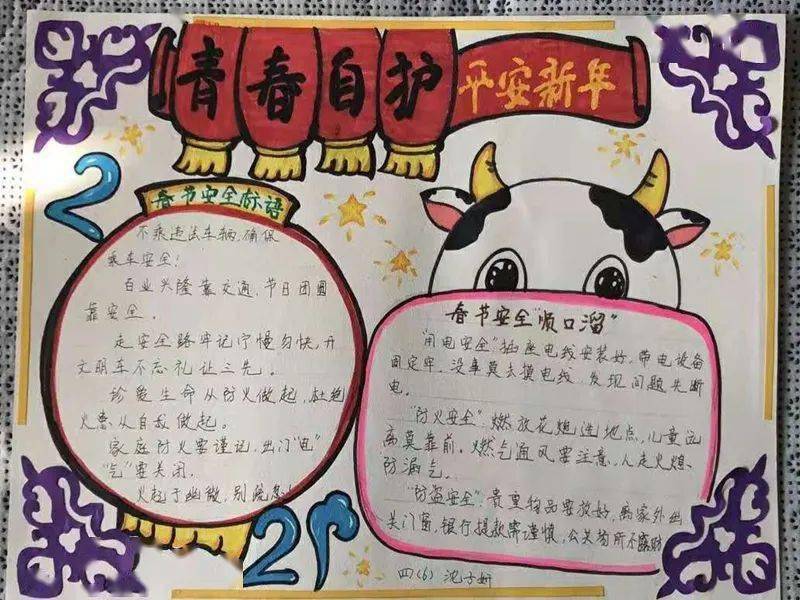 青春自护
平安新年
2
春节安全标语
不乘违法车辆,确保
乘车安全!
百业兴隆靠交通,节日团圆
靠安全。
走安全路牢记宁慢勿快,开
文明车不忘礼让三先。
珍爱生命从防火做起,杜绝
火患从自我做起。
家庭防火要谨记,出门"电"
"气"要关闭。
火起于幽微,别
21
春节安全"顺口溜"
"用电安全":插座电线安装好,带电设备
固定牢。没事莫去摸电线,发现问题先断
电。
"防火安全":燃放花炮选地点,儿童远
离莫靠前。燃气通风要注意,人走火熄
防漏气。
"防盗安全":贵重物品要放好,离家外出
关门窗,银行提款需谨慎,公共场所不露财
四(6) 沈子妍